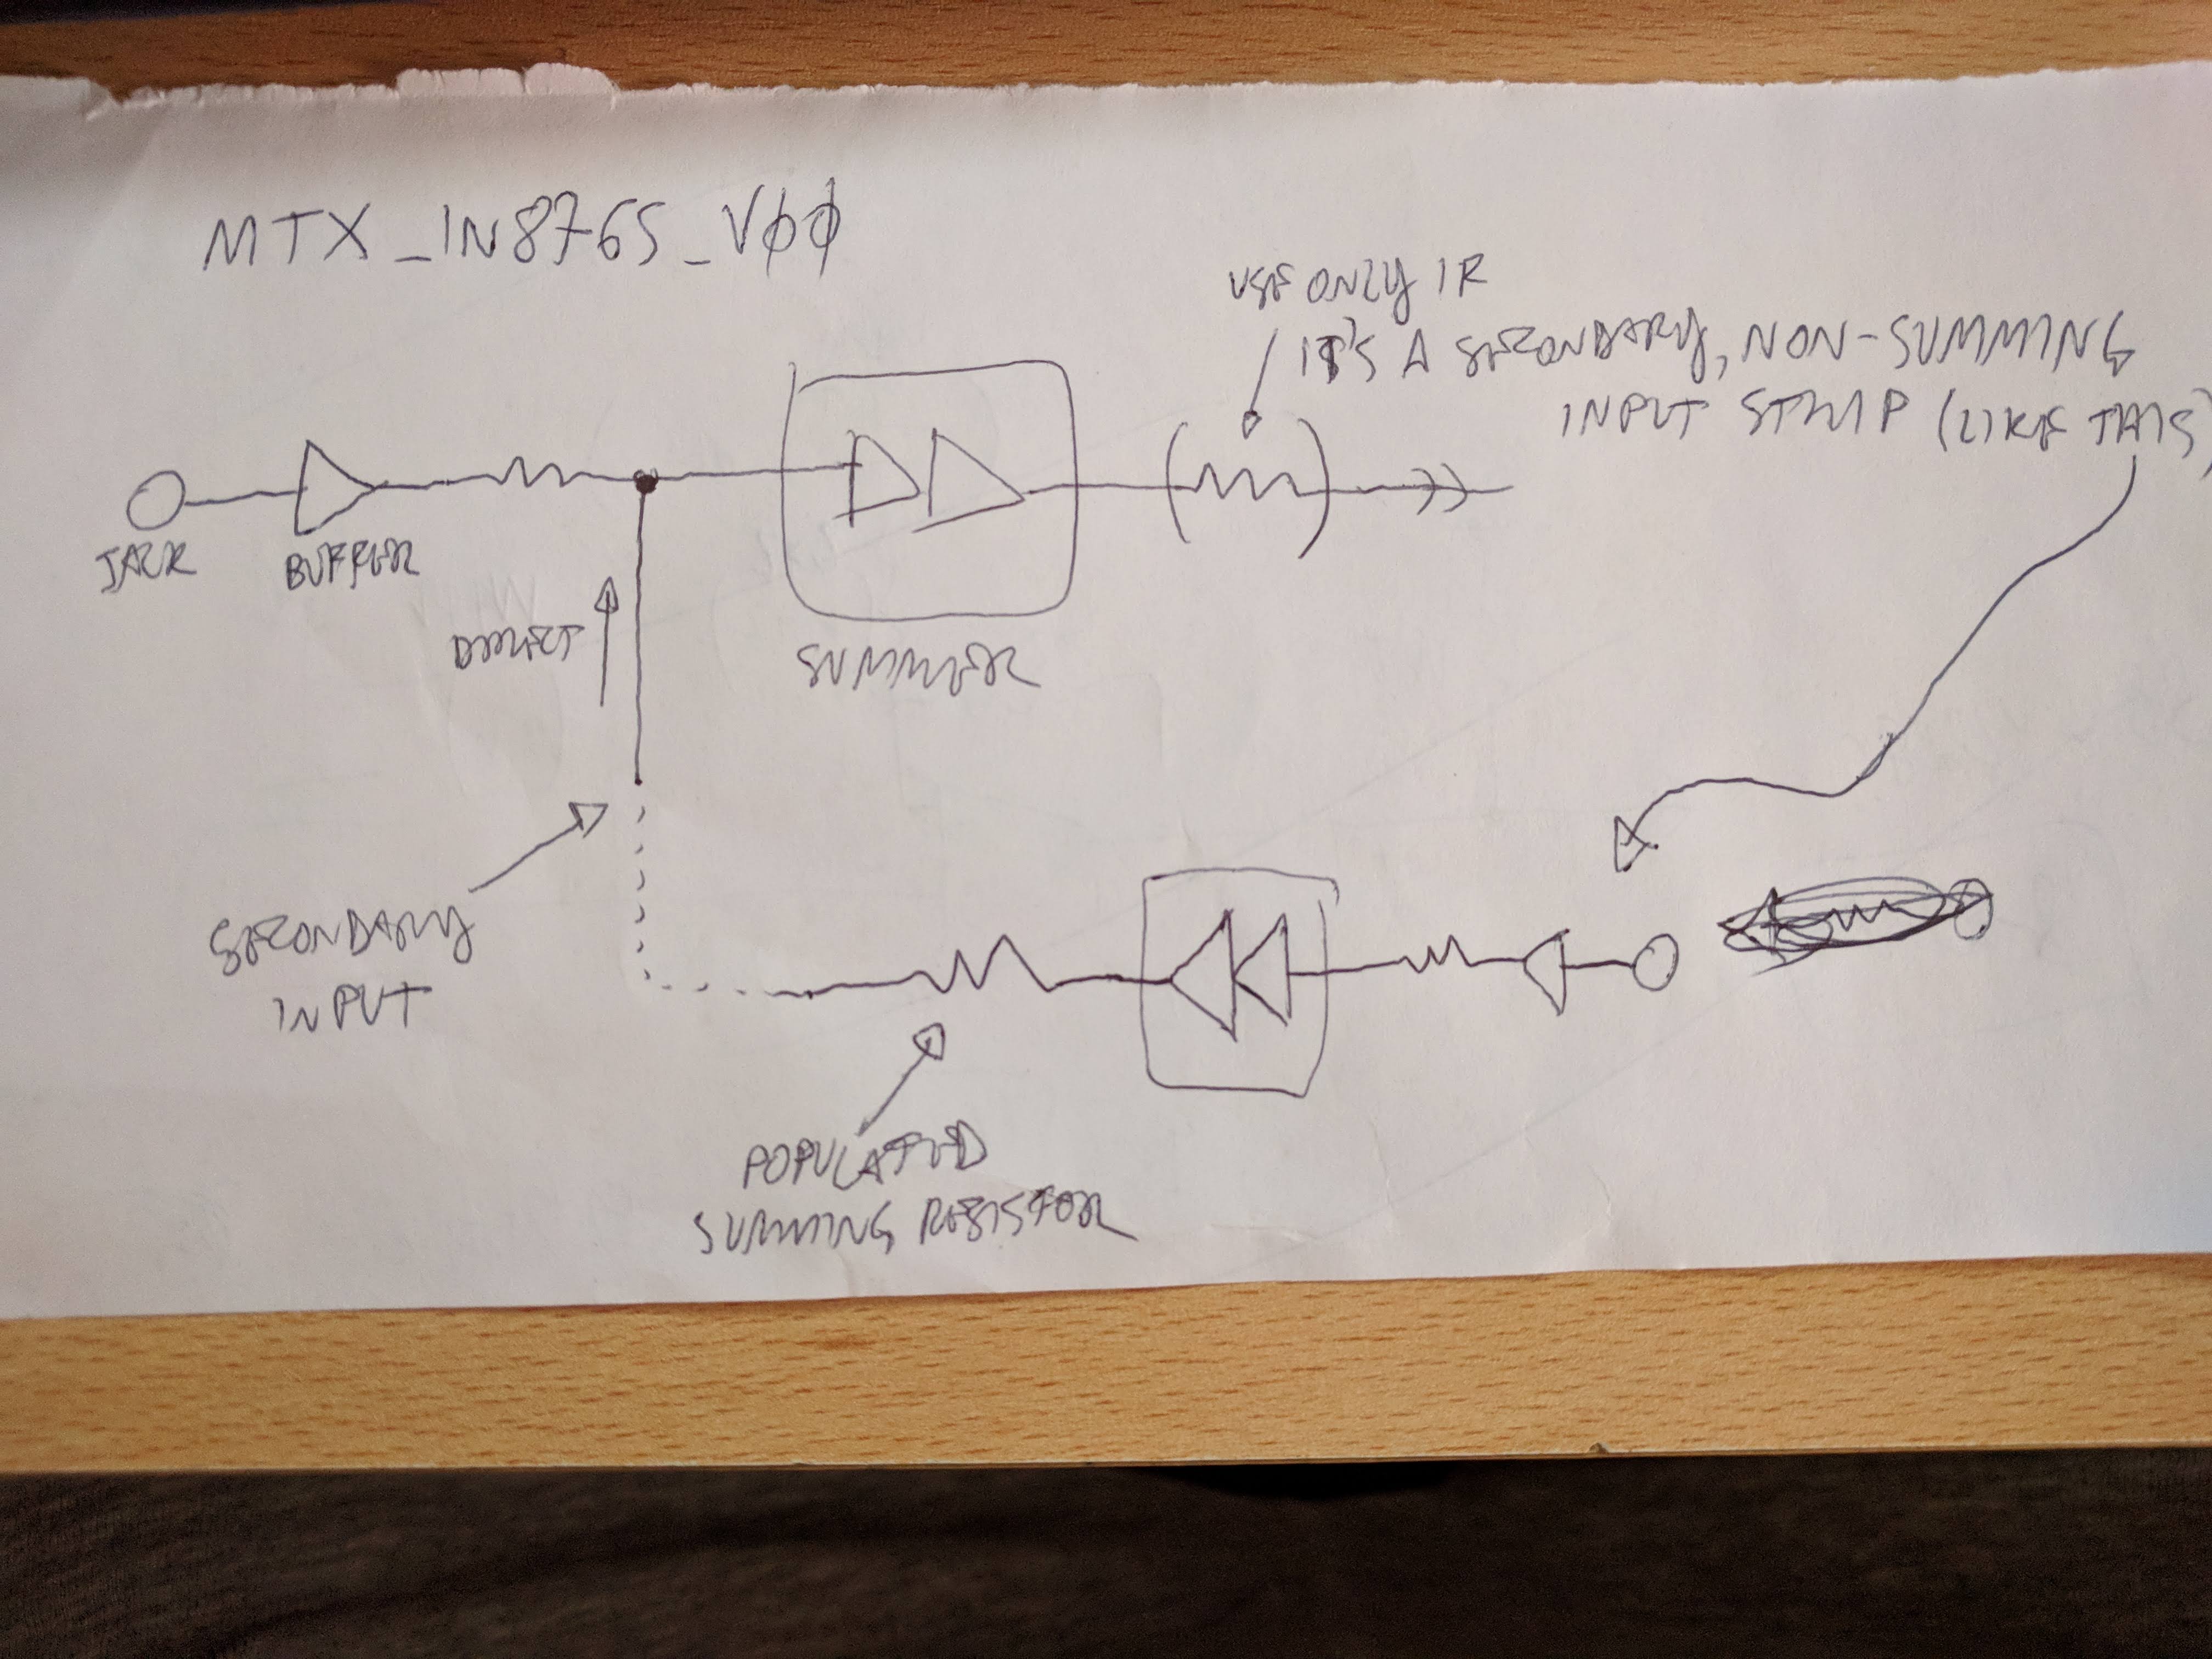 MTX_IN8765_V00
USE ONLY IF
IT'S A SECONDARY, NON-SUMMING
INPUT STRIP (LIKE THIS)
JACK
BUFFER
DIRECT
SUMMER
SECONDARY
INPUT
POPULATED
SUMMING RESISTOR